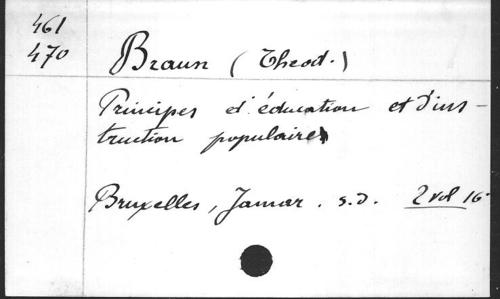 461
470
Braun (Theod.)
Principes d'éducation et d'ins-
truction populaires
Bruxelles, Jamar. s.d. 2 vol 16°